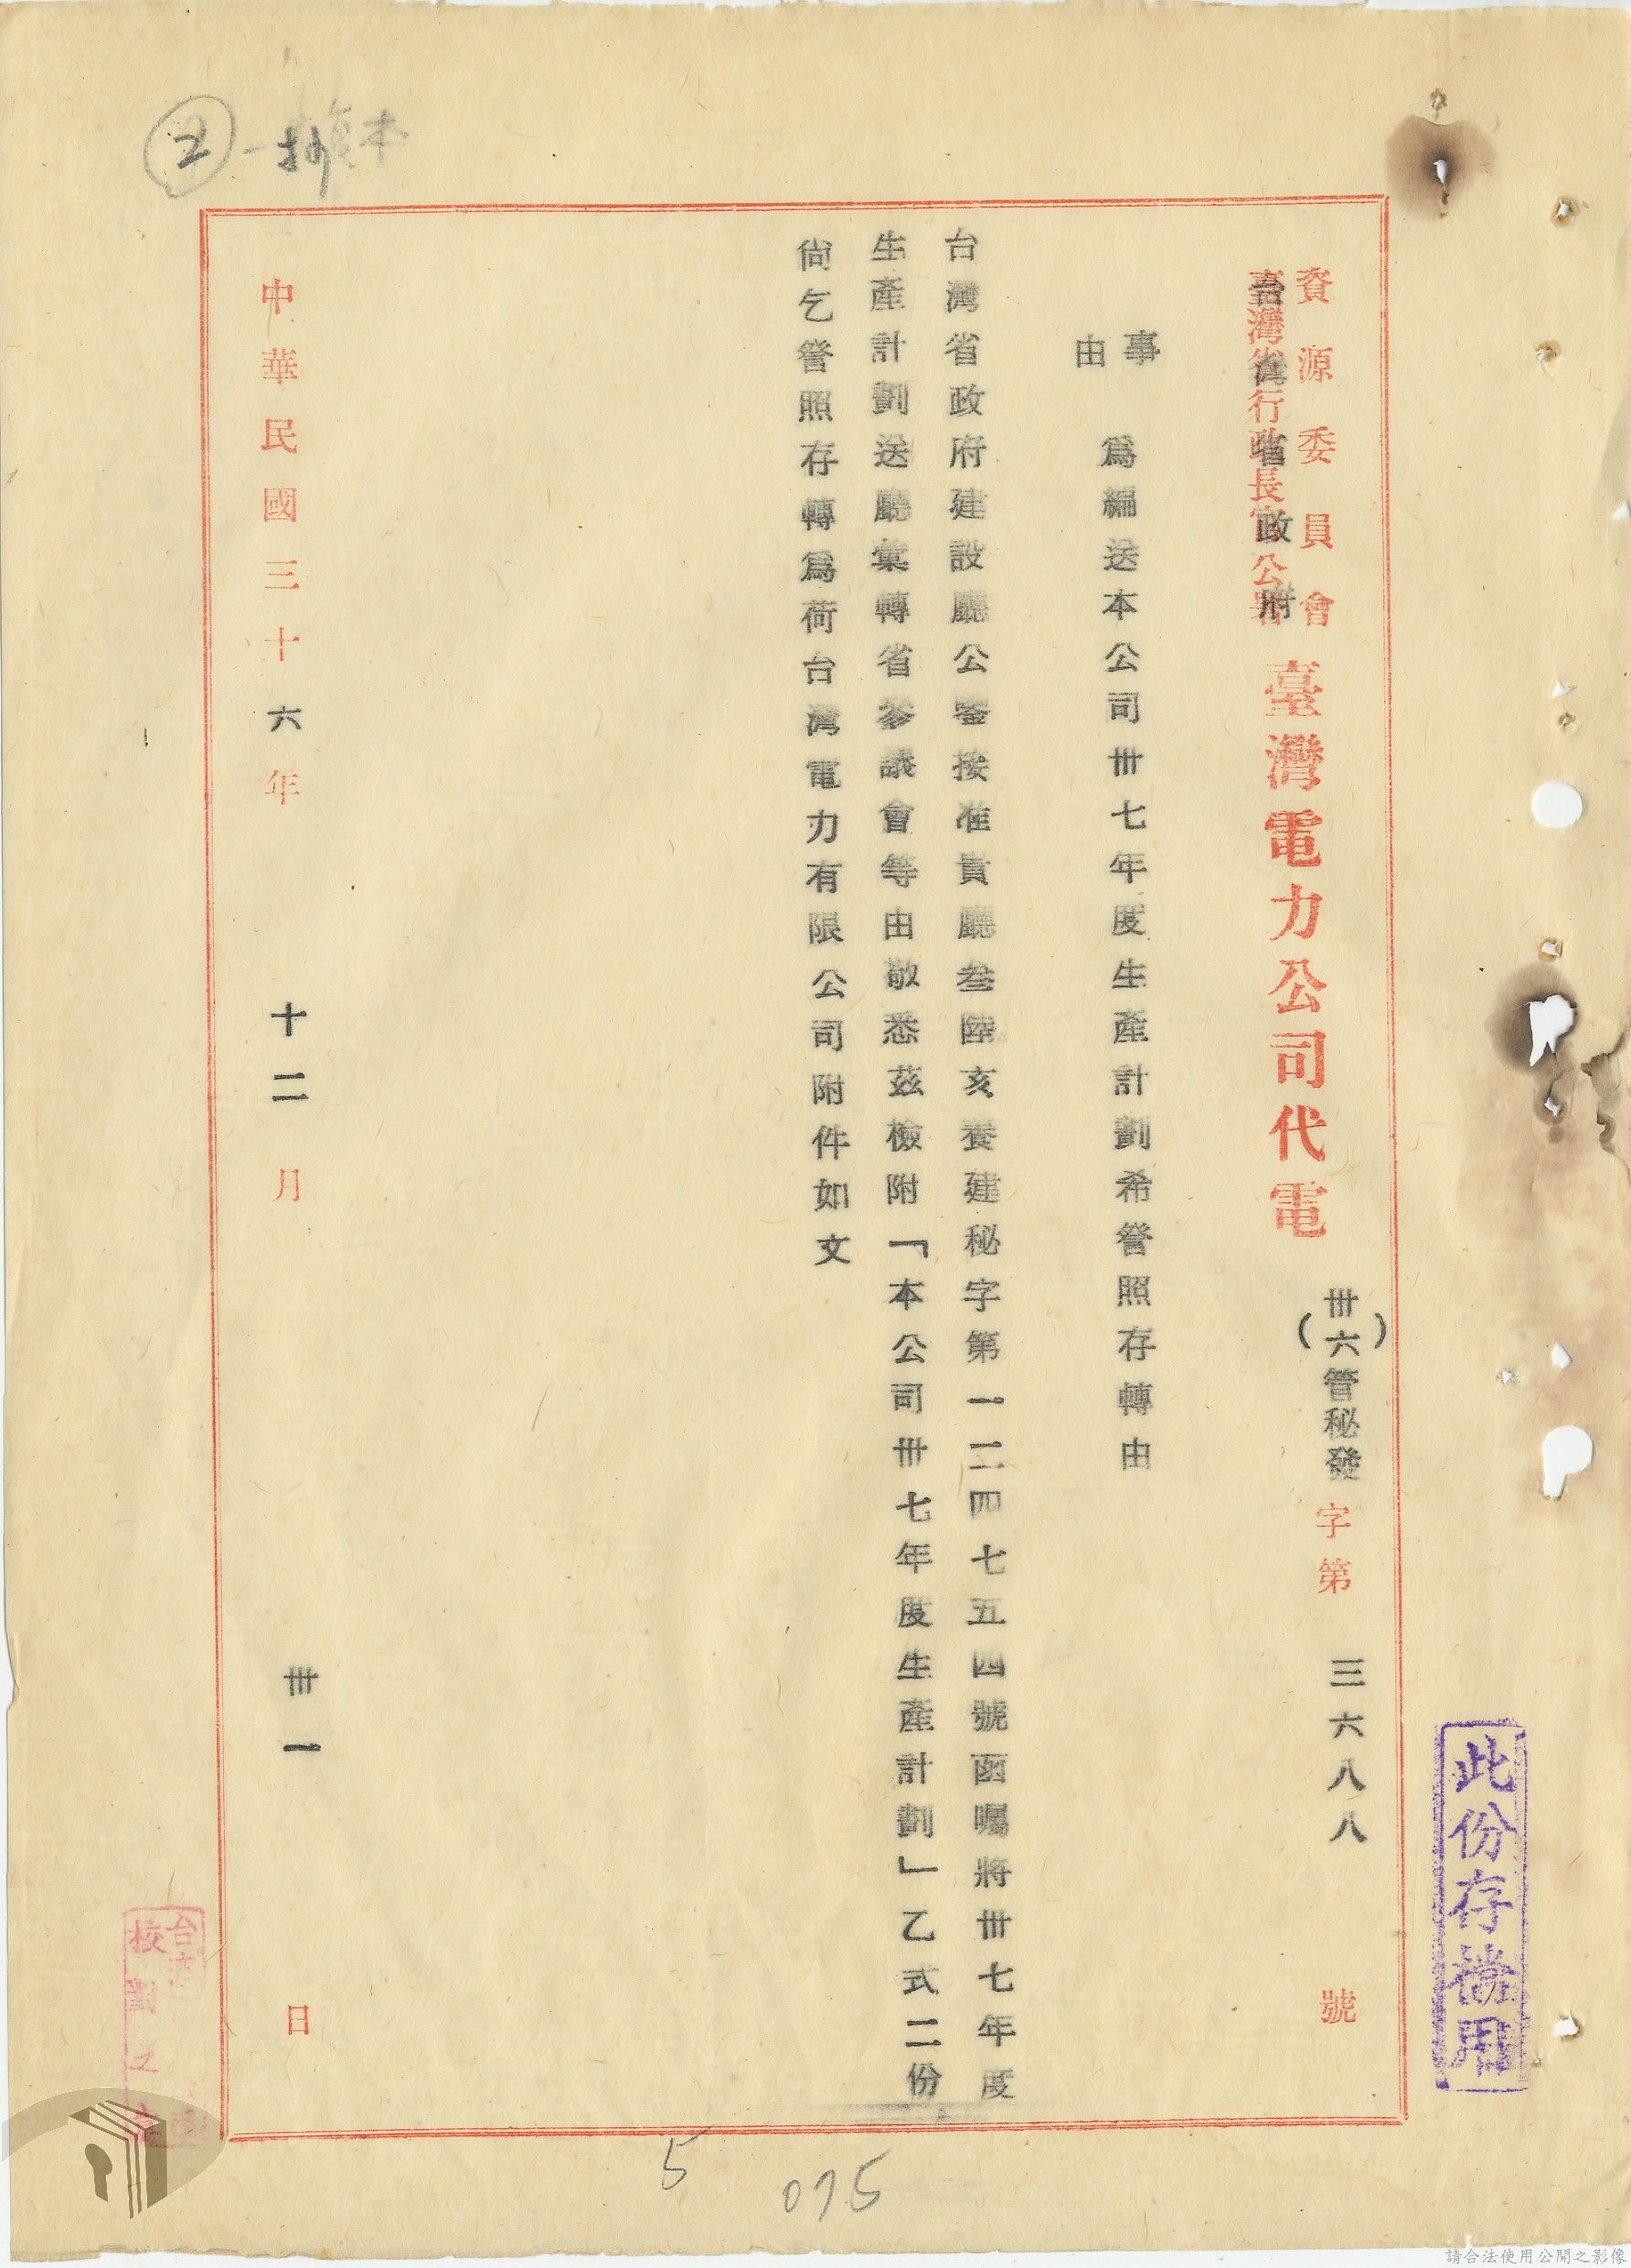 資源委員會
臺灣省行政長官公署
台灣省政府
臺灣電力公司代電
(卅六)管秘發字第三六八八號
事由
為編送本公司卅七年度生產計劃希詧照存轉由
台灣省政府建設廳公鑒接准貴廳叁陸亥養建秘字第一二四七五四號函囑將卅七年度
生產計劃送廳彙轉省參議會等由敬悉茲檢附「本公司卅七年度生產計劃」乙式二份
尙乞詧照存轉為荷台灣電力有限公司附件如文
中華民國三十六年十二月卅一日
此份存檔用
2
台灣
校對之章
5
075
請合法使用公開之影像